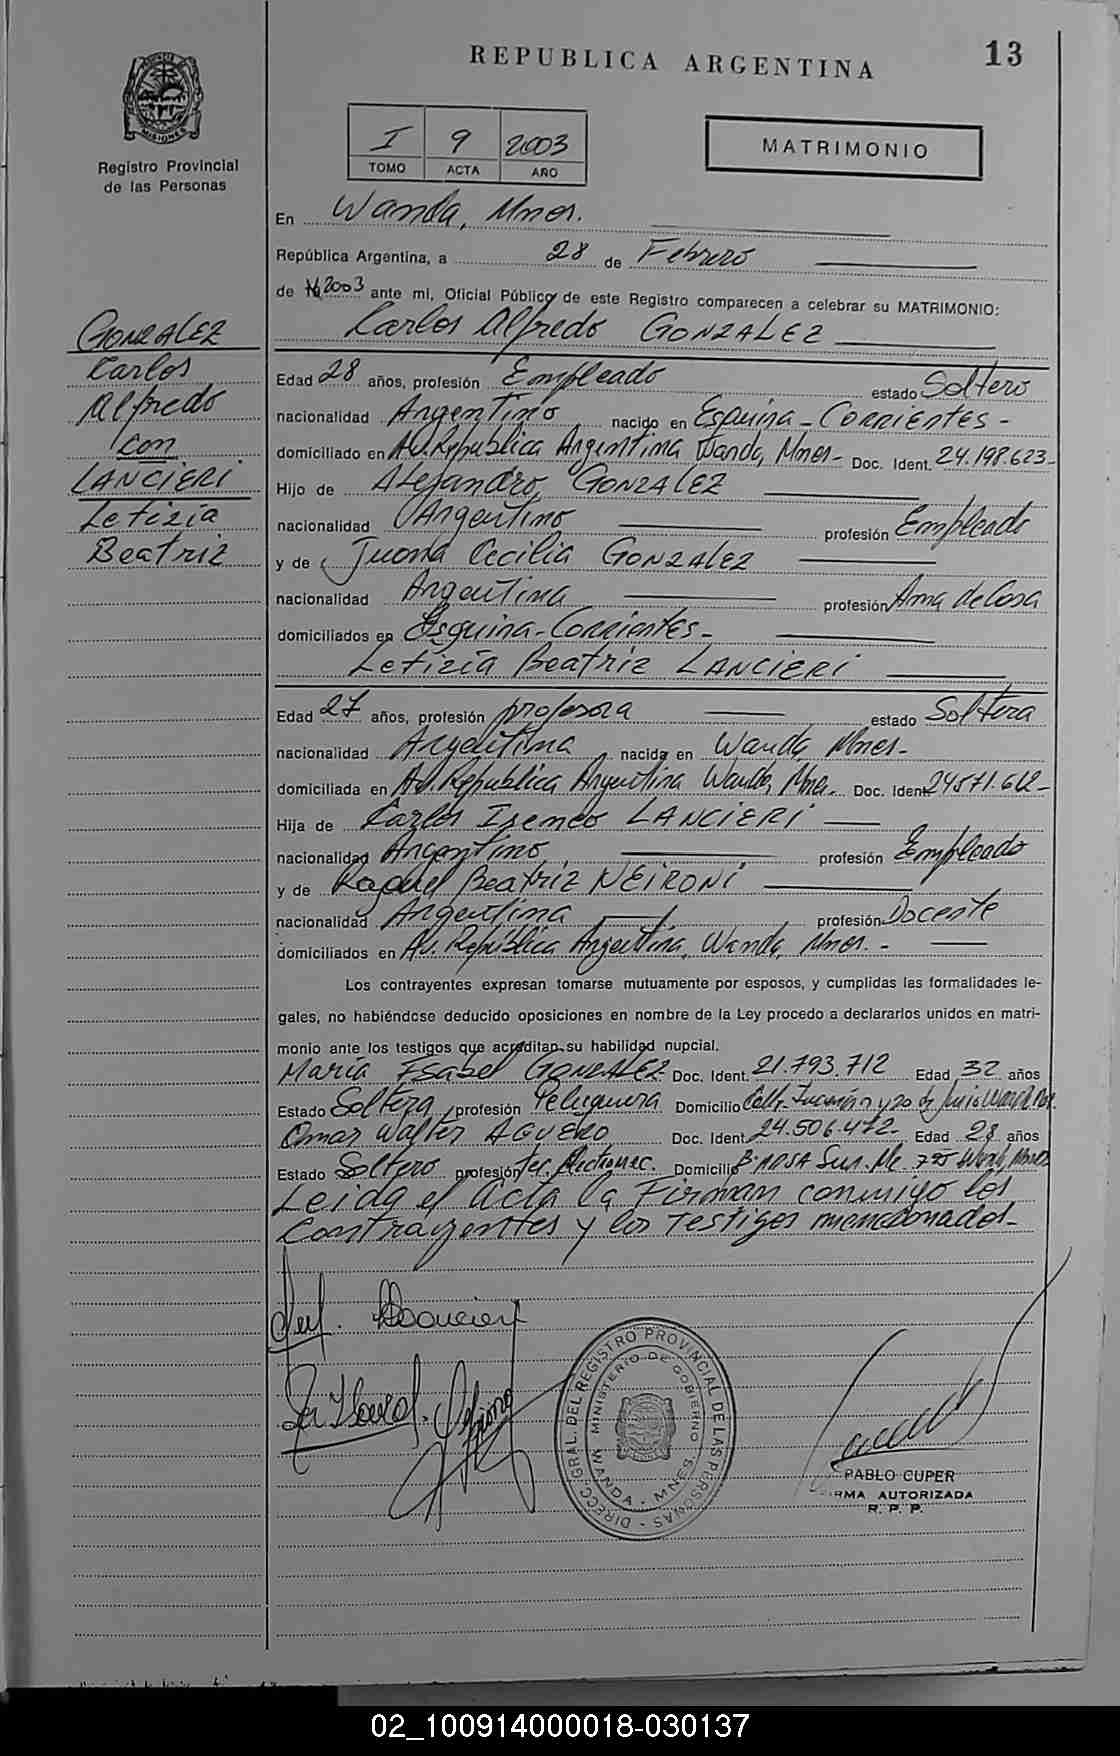 REPUBLICA ARGENTINA
13
MISIONES
Registro Provincial
de las Personas
I 9 2003
TOMO ACTA AÑO
MATRIMONIO
En Wanda, Mnes.
República Argentina, a 28 de Febrero
de 2003 ante mi, Oficial Público de este Registro comparecen a celebrar su MATRIMONIO:
Karlos Alfredo GONZALEZ
GONZALEZ
Karlos
Alfredo
con
LANCIERI
Letizia
Beatriz
Edad 28 años, profesión Empleado estado Soltero
nacionalidad Argentino nacido en Esquina - Corrientes -
domiciliado en Av. Republica Argentina Wanda, Mnes - Doc. Ident. 24.198.623-
Hijo de Alejandro, GONZALEZ
nacionalidad Argentino profesión Empleado
y de Juana Cecilia GONZALEZ
nacionalidad Argentina profesión Ama de Casa
domiciliados en Esquina - Corrientes -
Letizia Beatriz LANCIERI
Edad 27 años, profesión profesora estado Soltera
nacionalidad Argentina nacida en Wanda, Mnes -
domiciliada en Av. Republica Argentina Wanda, Mnes - Doc. Ident.
Hija de Karlos Ireneo LANCIERI
nacionalidad Argentino profesión Empleado
y de Raquel Beatriz NEIRONI
nacionalidad Argentina profesión Docente
domiciliados en Av. República Argentina, Wanda, Mnes. -
Los contrayentes expresan tomarse mutuamente por esposos, y cumplidas las formalidades le-
gales, no habiéndose deducido oposiciones en nombre de la Ley procedo a declararlos unidos en matri-
monio ante los testigos que acreditan su habilidad nupcial.
María Isabel GONZALEZ Doc. Ident. 21.793.712 Edad 32 años
Estado Soltera profesión Peluquera Domicilio
Omar Walter AGUERO Doc. Ident. 24.506.472- Edad 28 años
Estado Soltero profesión Tec. Domicilio
Leida el Acta la Firman conmigo los
Contrayentes y los Testigos mencionados -
DIRECC. GRAL. DEL REGISTRO PROVINCIAL DE LAS PERSONAS
MINISTERIO DE GOBIERNO
WANDA - MNES.
PABLO CUPER
FIRMA AUTORIZADA
R. P. P.
02_100914000018-030137